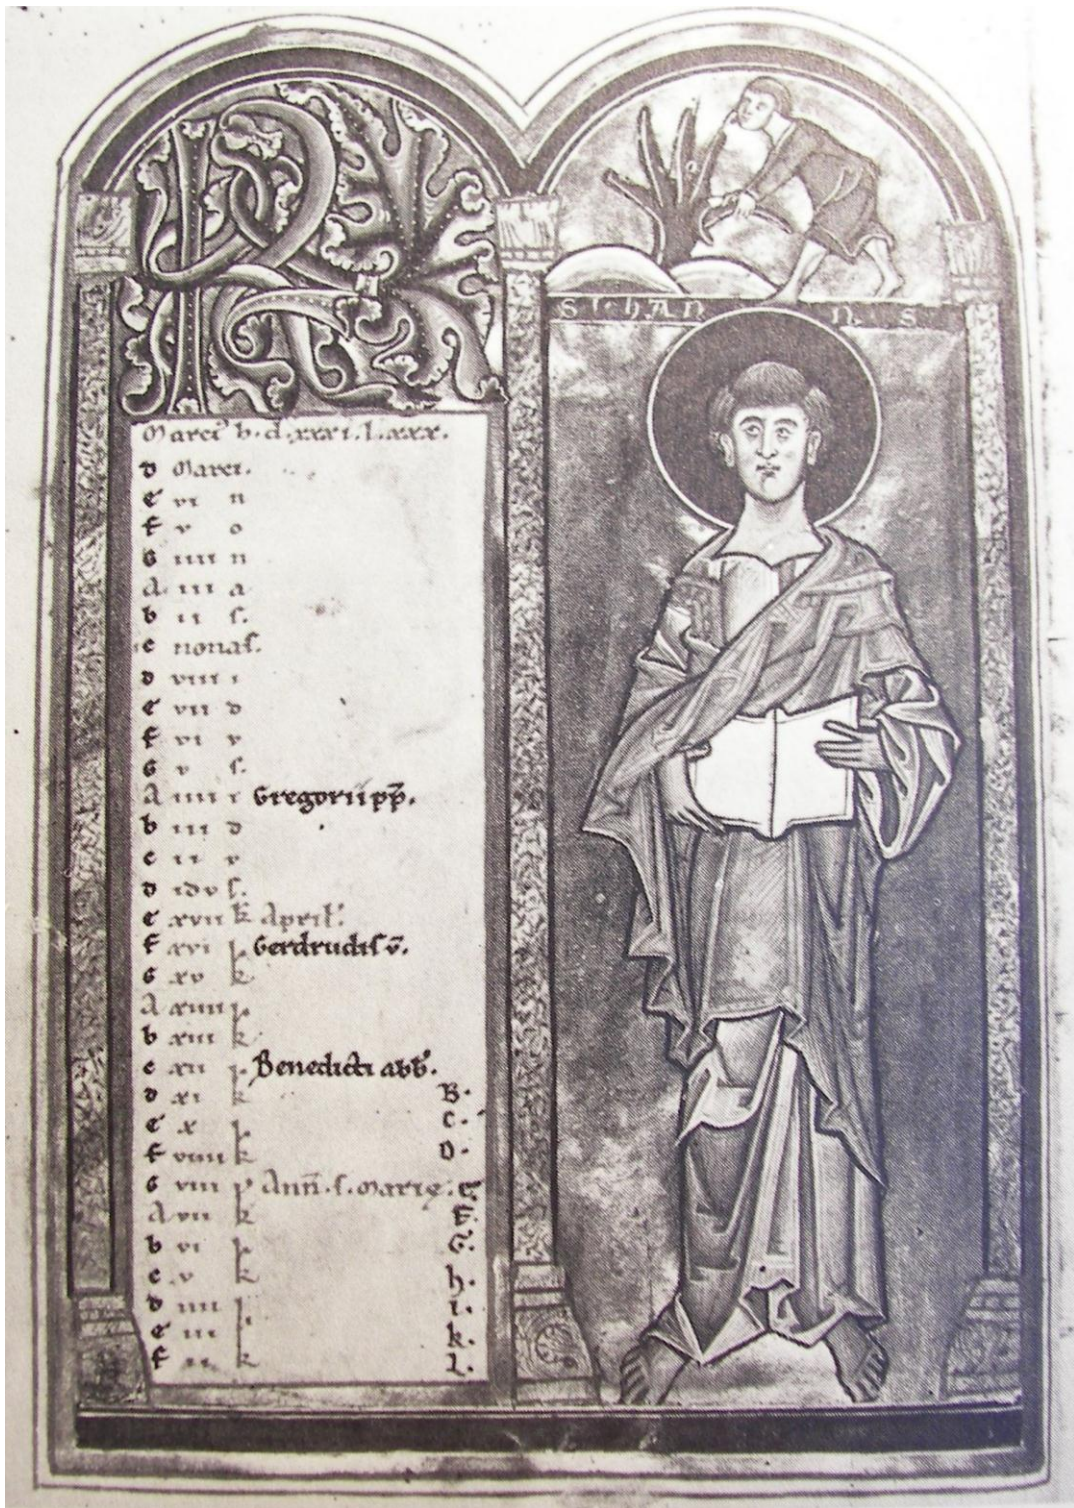 S IOHAN N S
Marci' h. d. xxxi. l. xxx.
D Marci.
E vi n
F v o
G iiii n
A iii a
b ii s.
c nonas.
D viii i
E vii d
F vi v
G v s.
A iiii i Gregorii pp̄.
b iii d
c ii v
D idvs.
E xvii k April'.
F xvi k Gerdrudis v̄.
G xv k
A xiiii k
b xiii k
c xii k Benedicti abb'.
D xi k B.
E x k C.
F viiii k D.
G viii k Ann̄. s. Marię. E
A vii k F.
b vi k G.
c v k h.
D iiii k i.
E iii k k.
F ii k L.